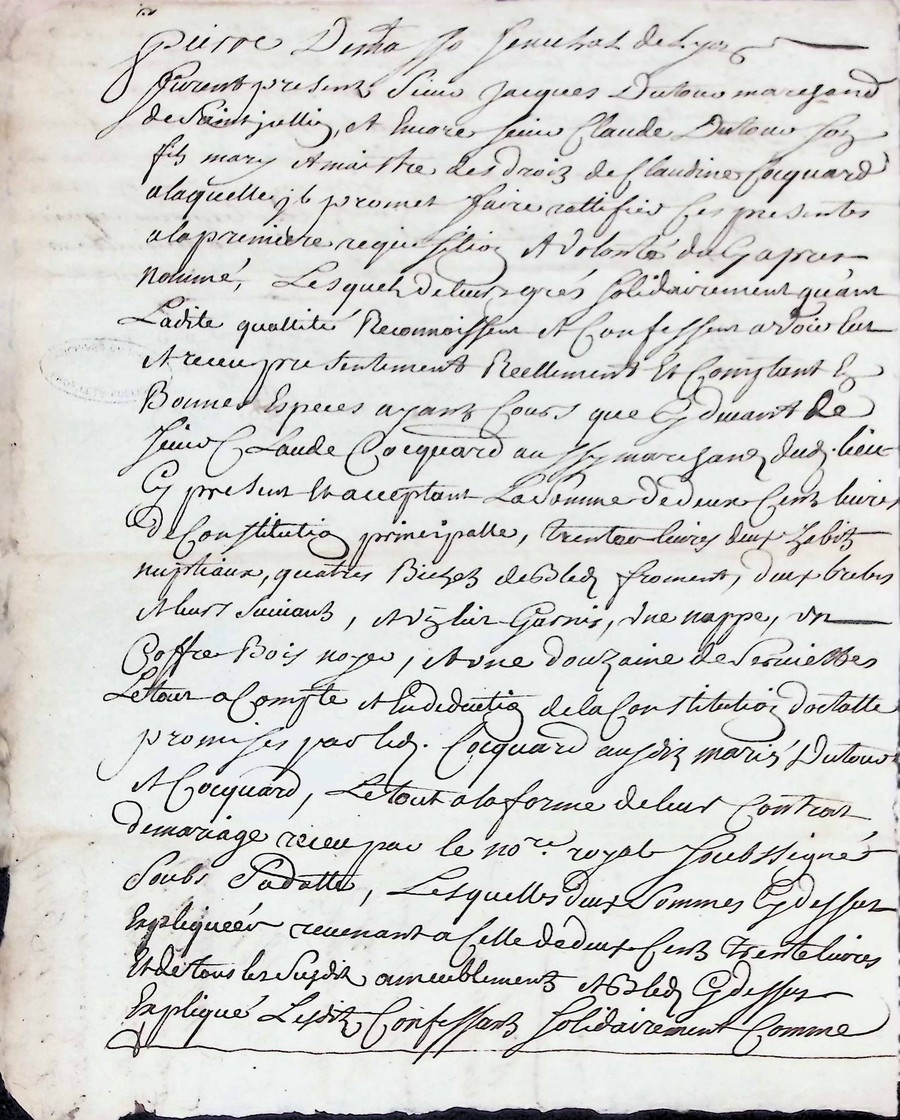 pierre
furent present Sieur Jacques Dutour marchand
de Saint jullin, et Encore Sieur Claude Dutour son
fils mary et maistre des droiz de Claudine Cocquard
a laquelle il promet faire rattiffier Ces presentes
a la premiere requisition et vollonté du Cy apres
nommé, Lesquelz de leurs grés solidairement quant
Ladite quallité Reconnoissent et Confessent avoir Eu
et receu presentement Reellement Et Comptant En
Bonnes Especes ayant Cours que Cy devant de
Sieur Claude Cocquard aussy marchand dud. lieu
Cy present Et acceptant La Somme de deux Cent livres
de Constitution principalle, trente livres deux habitz
nuptiaux, quatres Bichets de Bled froment, deux brebis
et leurs Suivant, et un lict Garnis, une nappe, un
Coffre Bois noyer, et une douzaine de Serviettes
Le tout a Compte et En deduction de la Constitution dotalle
promises par led. Cocquard ausdiz mariés Dutour
et Cocquard, Le tout a la forme de leur Contrat
de mariage receu par le nore. royal Soubssigné
Soubs Sa datte, Lesquelles deux Sommes Cy dessus
Expliqueés revenant a Celle de deux Cent trente livres
Et de tous les Susdit ameublement et Bled Cy dessus
Expliqué Lesditz Confessantz Solidairement Comme